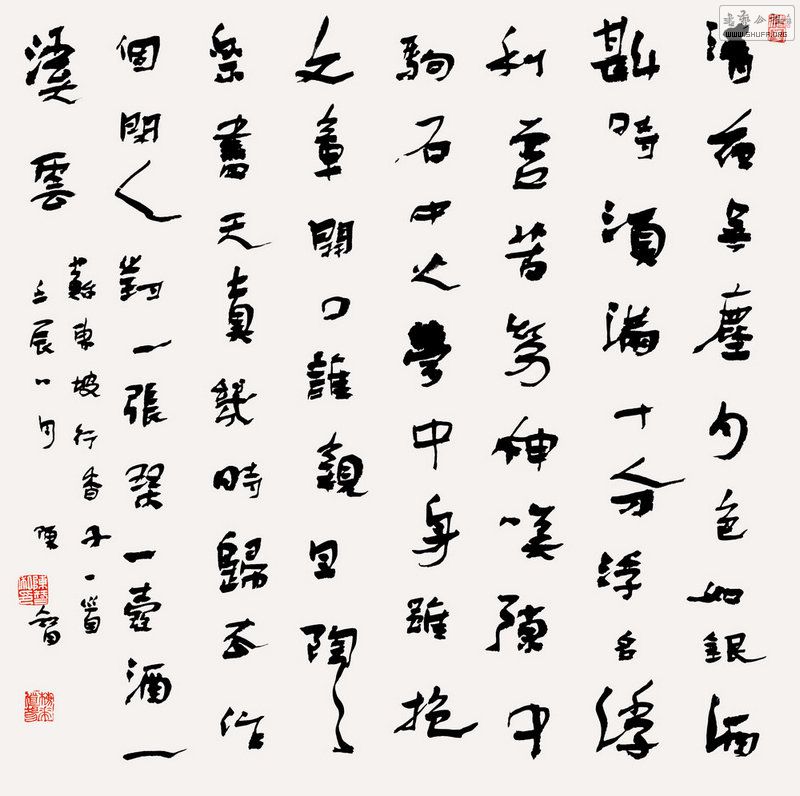 清夜無塵月色如銀酒
斟時須滿十分浮名浮
利虛苦勞神嘆隙中
駒石中火夢中身雖抱
文章開口誰親且陶々
樂盡天真幾時歸去作
個閑人對一張琴一壺酒一
溪雲
蘇東坡行香子一首
壬辰八月陳
WWW.SHUFR.ORG